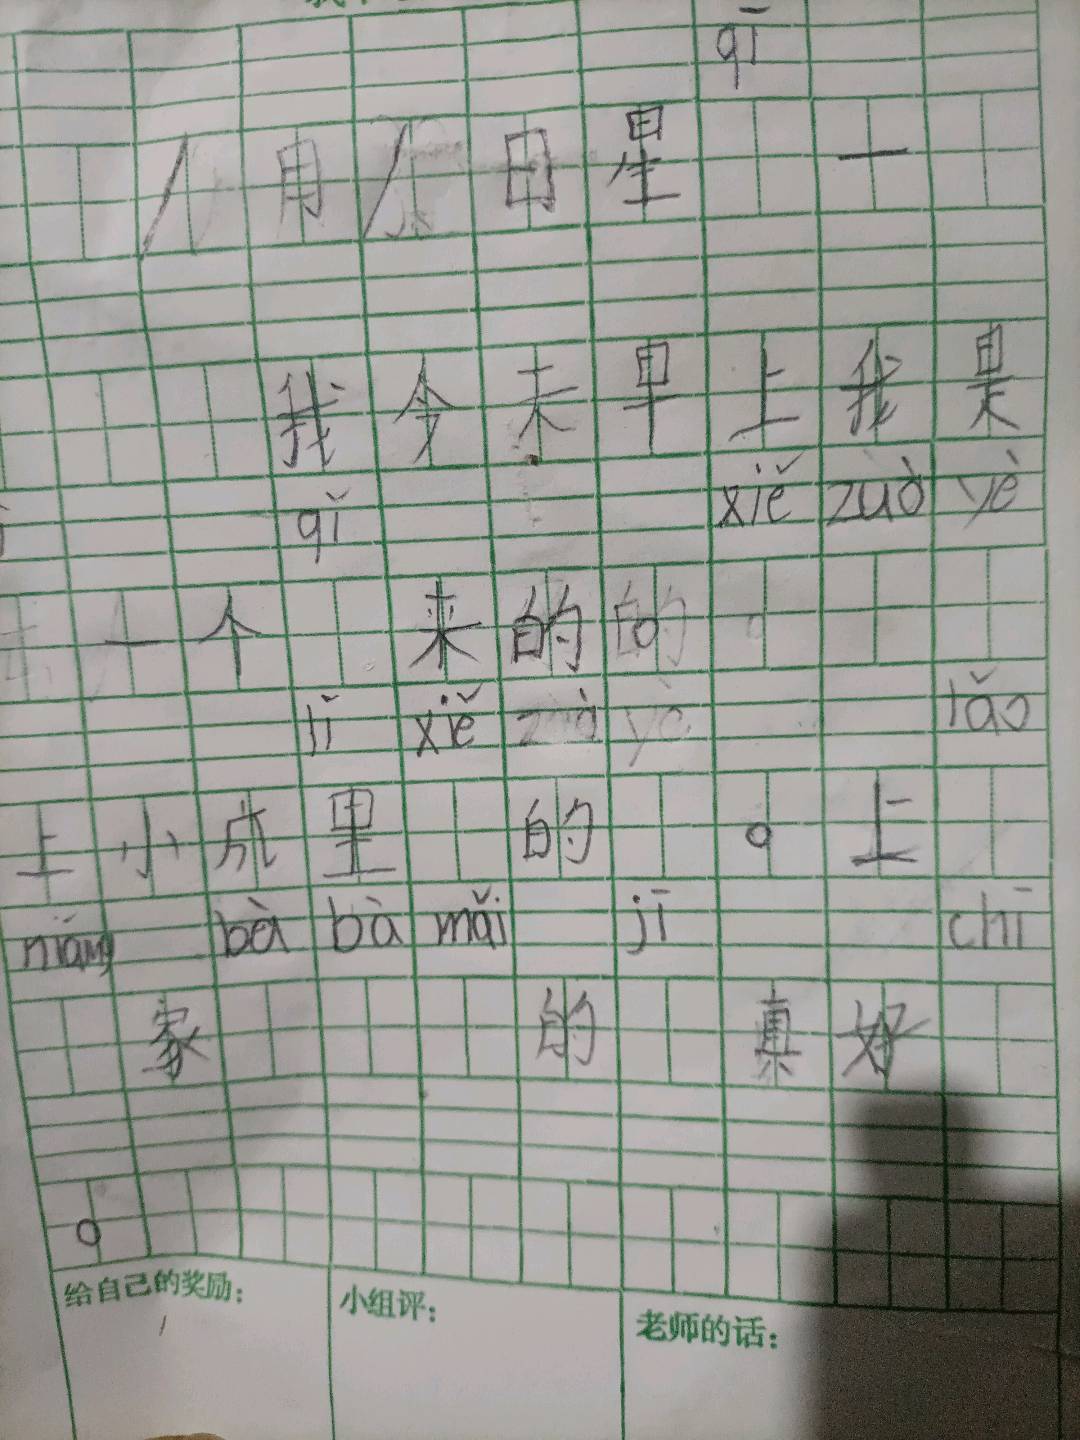 qī
月 日星 一
我今天早上我是
qǐ xiě zuò yè
一个 来的的。
jǐ xiě zuò yè
上小成里 的 。上
niáng bà bà mǎi jī chī
家 的 真好
。
给自己的奖励:
小组评:
老师的话: